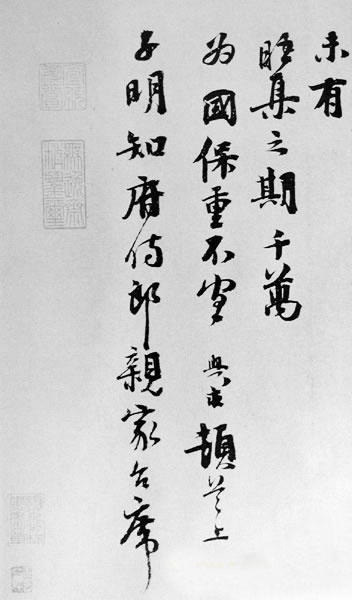 未有
晤集之期千萬
為國保重不宣 與求頓首上
子明知府侍郎親家台席